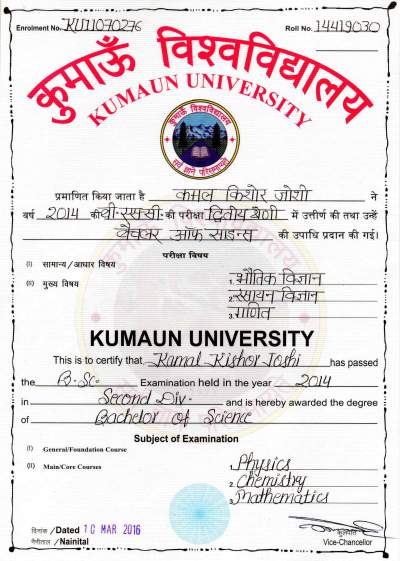 Enrolment No. KU11070276 Roll No. 14419030
कुमाऊँ विश्वविद्यालय
KUMAUN UNIVERSITY
कुमाऊँ विश्वविद्यालय
प्रमाणित किया जाता है कमल किशोर जोशी ने
वर्ष 2014 की बी.एससी. की परीक्षा द्वितीय श्रेणी में उत्तीर्ण की तथा उन्हें
बैचलर ऑफ साइन्स की उपाधि प्रदान की गई।
परीक्षा विषय
(i) सामान्य/आधार विषय
(ii) मुख्य विषय 1. भौतिक विज्ञान
2. रसायन विज्ञान
3. गणित
KUMAUN UNIVERSITY
This is to certify that Kamal Kishor Joshi has passed
the B.Sc. Examination held in the year 2014
in Second Div. and is hereby awarded the degree
of Bachelor of Science
Subject of Examination
(I) General/Foundation Course
(II) Main/Core Courses 1. Physics
2. Chemistry
3. Mathematics
दिनांक /Dated 10 MAR 2016
नैनीताल /Nainital
कुलपति
Vice-Chancellor